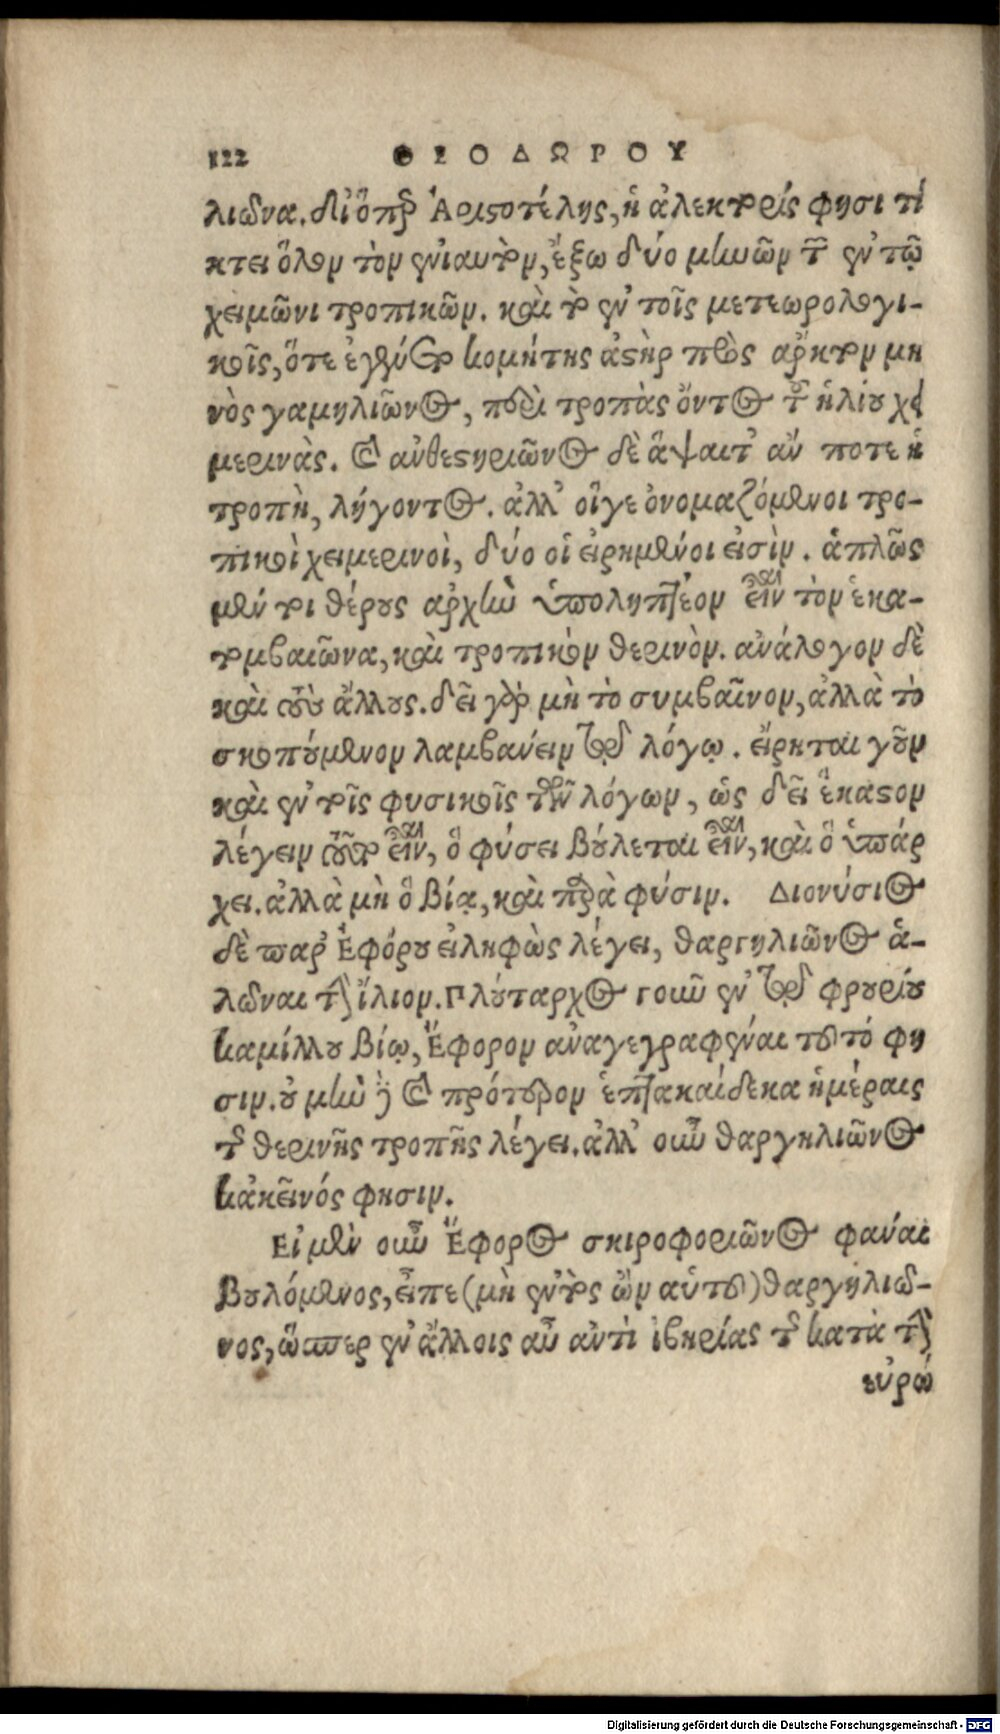 122 ΘΕΟΔΩΡΟΥ
λιῶνα. διόπερ Ἀριστοτέλης, ἡ ἀλεκτορίς φησι τί
κτει ὅλον τὸν ἐνιαυτὸν, ἔξω δύο μηνῶν τῶν ἐν τῷ
χειμῶνι τροπικῶν. καὶ τὸ ἐν τοῖς μετεωρολογι-
κοῖς, ὅτε ἐγένετο κομήτης ἀστὴρ πρὸς ἄρκτον μη
νὸς γαμηλιῶνος, περὶ τροπὰς ὄντος τοῦ ἡλίου χει
μερινὰς. καὶ ἀνθεστηριῶνος δὲ ἅψαιτ’ ἄν ποτε ἡ
τροπὴ, λήγοντος. ἀλλ’ οἵγε ὀνομαζόμενοι τρο-
πικοὶ χειμερινοὶ, δύο οἱ εἰρημένοι εἰσὶν. ἁπλῶς
μέντοι θέρους ἀρχὴν ὑποληπτέον εἶναι τὸν ἑκα-
τομβαιῶνα, καὶ τροπικὸν θερινὸν. ἀνάλογον δὲ
καὶ τοὺς ἄλλους. δεῖ γὰρ μὴ τὸ συμβαῖνον, ἀλλὰ τὸ
σκοπούμενον λαμβάνειν τῷ λόγῳ. εἴρηται γοῦν
καὶ ἐν τοῖς φυσικοῖς τῶν λόγων, ὡς δεῖ ἕκαστον
λέγειν τοῦτο εἶναι, ὃ φύσει βούλεται εἶναι, καὶ ὃ ὑπάρ
χει. ἀλλὰ μὴ ὃ βίᾳ, καὶ παρὰ φύσιν. Διονύσιος
δὲ παρ’ Ἐφόρου εἰληφὼς λέγει, θαργηλιῶνος ἁ-
λῶναι τὴν ἴλιον. Πλούταρχος γοῦν ἐν τῷ φρουρίου
καμίλλου βίῳ, Ἔφορον ἀναγεγραφέναι τοῦτό φη
σιν. οὐ μὴν γε καὶ πρότερον ἑπτακαίδεκα ἡμέραις
τῆς θερινῆς τροπῆς λέγει. ἀλλ’ οὖν θαργηλιῶνος
κἀκεῖνός φησιν.
Εἰ μὲν οὖν Ἔφορος σκιροφοριῶνος φάναι
βουλόμενος, εἶπε (μὴ ἐντὸς ὢν αὑτοῦ) θαργηλιῶ-
νος, ὥσπερ ἐν ἄλλοις αὖ ἀντὶ ἰβηρίας τῆς κατὰ τὴν
εὐρώ